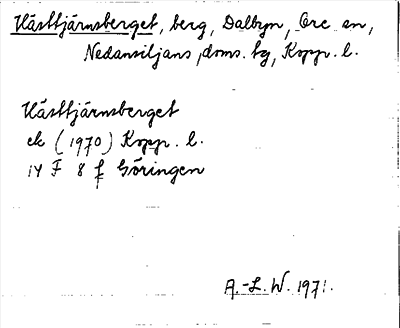 Hästtjärnsberget, berg, Dalbyn, Ore sn,
Nedansiljans doms. tg, Kopp. l.
Hästtjärnsberget
ek (1970) Kopp. l.
14 F 8 f Göringen
A.-L. W. 1971.